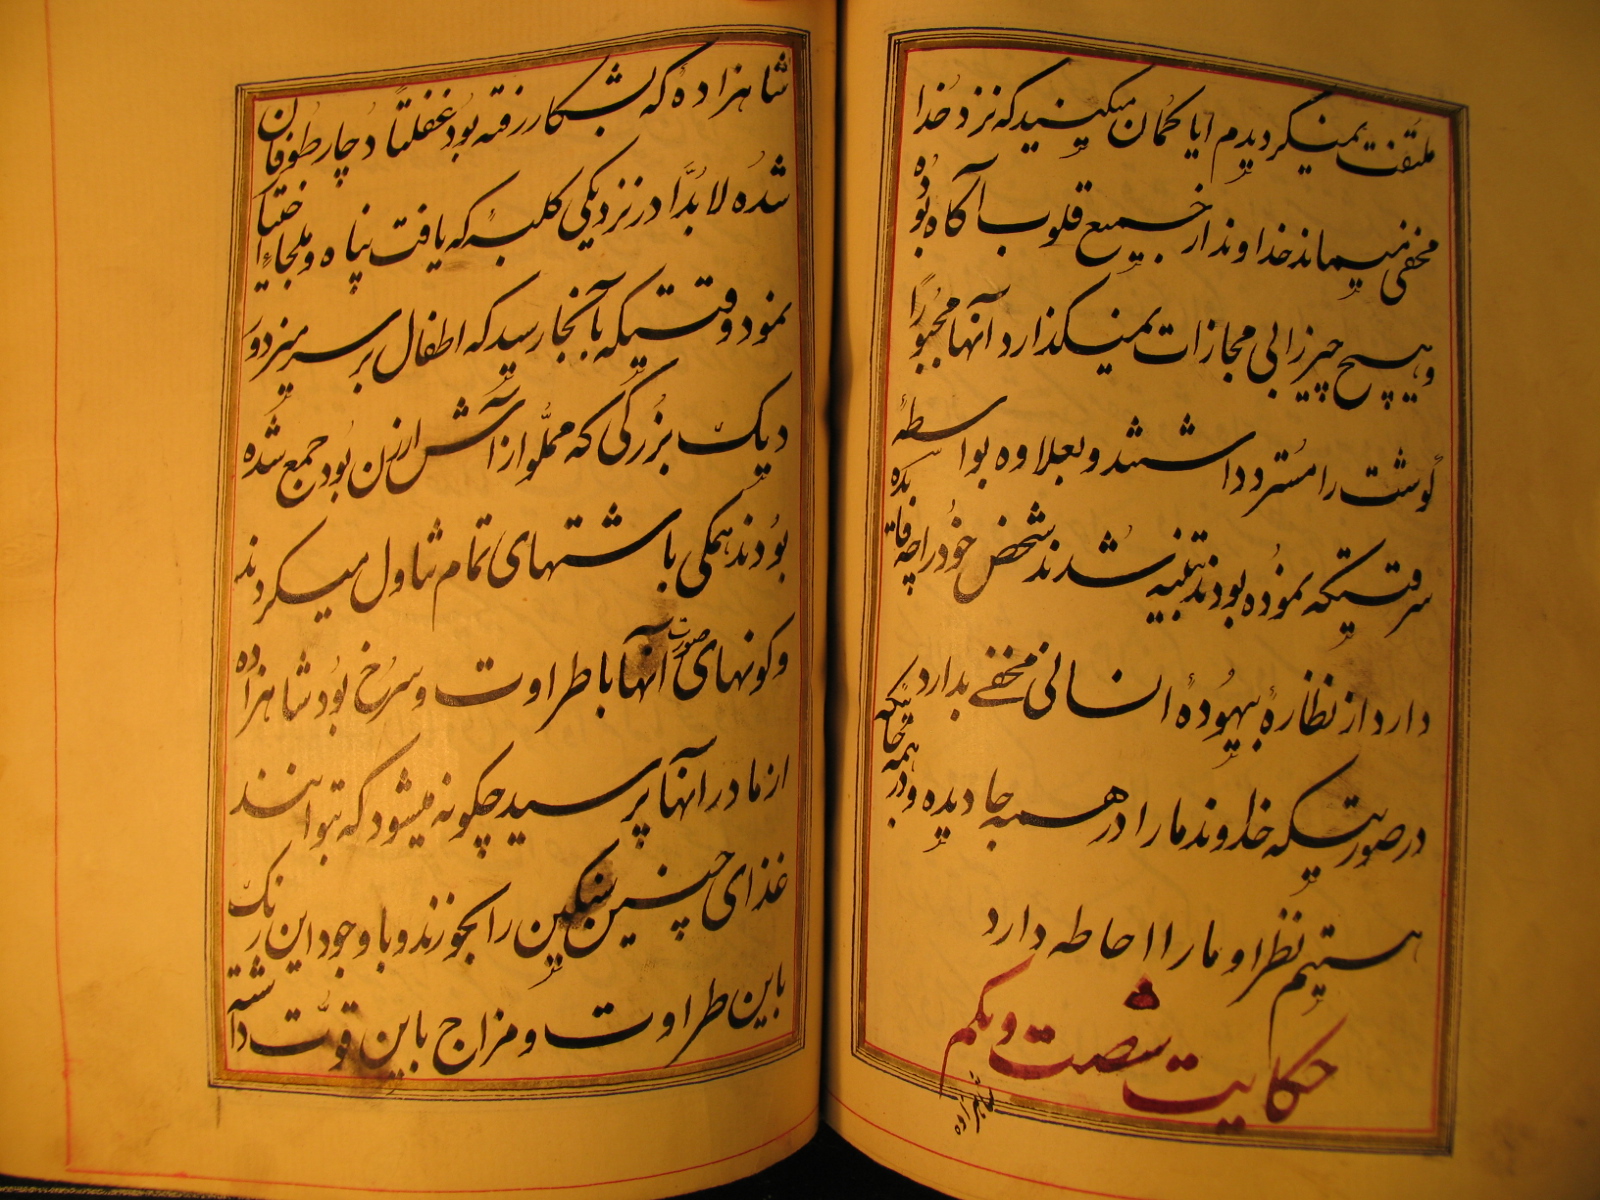 ملتفت نمیگردیدم آیا گمان میکنید که نزد خدا
مخفی میماند خداوند از جمیع قلوب آگاه بوده
و هیچ چیز را بی مجازات نمیگذارد آنها مجبوراً
گوشت را مسترد داشتند و بعلاوه بواسطهٔ
سرقتیکه نموده بودند تنبیه شدند شخص خود را چه
دارد از نظارهٔ بیهودهٔ انسانی مخفی بدارد
در صورتیکه خداوند ما را در همه جا دیده و در همه حالتیکه
هستیم نظر او ما را احاطه دارد
حکایت شصت و یکم
شاهزاده
شاهزاده که بشکار رفته بود غفلتاً دچار طوفان
شده لابداً در نزدیکی کلبهٔ که یافت پناه و ملجاء اختیار
نمود وقتیکه بآنجا رسید که اطفال بر سر میز دور
دیک بزرگی که مملو از آش ارزن بود جمع شده
بودند همگی با اشتهای تمام تناول میکردند
و گونهای صورت آنها با طراوت و سرخ بود شاهزاده
از مادر آنها پرسید چگونه میشود که بتوانند
غذای چنین سنگین را بخورند و با وجود این رنگ
باین طراوت و مزاج باین قوت داشته